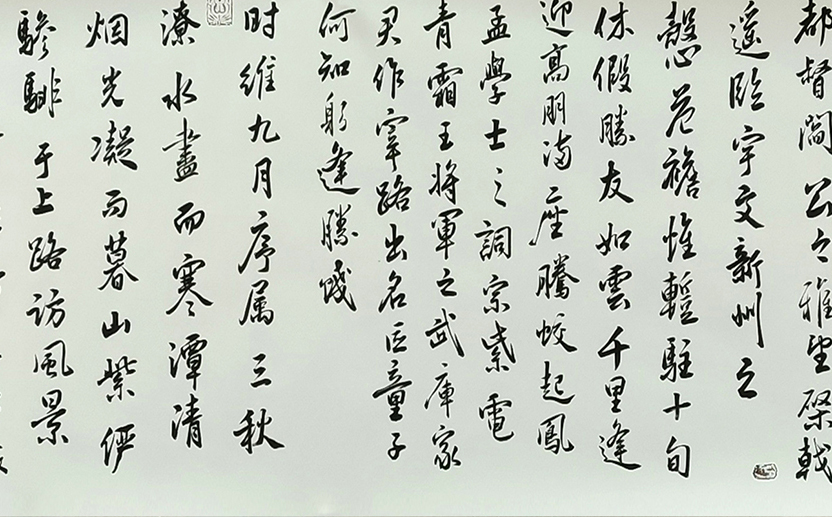 都督閻公之雅望棨戟
遥臨宇文新州之
懿范襜惟暫駐十旬
休假勝友如雲千里逢
迎高朋满座騰蛟起鳳
孟學士之詞宗紫電
青霜王将軍之武庫家
君作宰路出名区童子
何知躬逢勝餞
时維九月序属三秋
潦水盡而寒潭清
烟光凝而暮山紫俨
驂騑于上路访風景